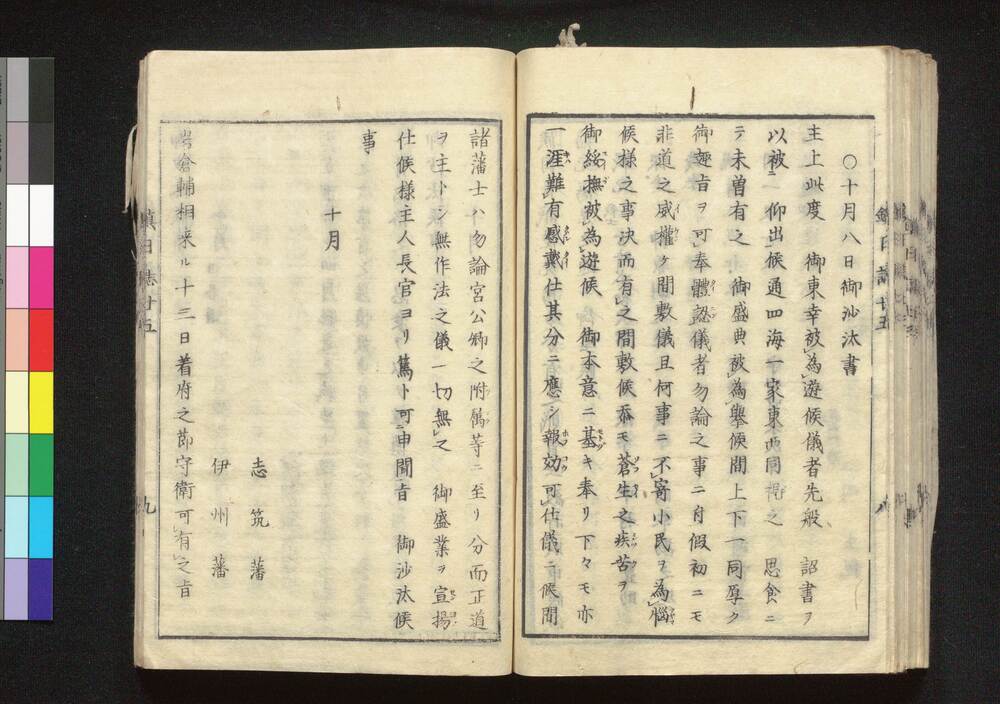 〇十月八日御沙汰書
主上此度　御東幸被為遊候儀者先般　詔書ヲ
以被　仰出候通四海一家東西同視之　思食ニ
テ未曽有之　御盛典被為舉候間上下一同厚ク
御趣旨ヲ可奉體認儀者勿論之事ニ付假初ニモ
非道之威權ケ間敷儀且何事ニ不寄小民ヲ為惱
候様之事決而有之間敷候忝モ蒼生之疾苦ヲ
御綏撫被為遊候　御本意ニ基キ奉リ下々モ亦
一涯難有感戴仕其分ニ應シ報効可仕儀ニ候間
諸藩士ハ勿論宮公卿之附属等ニ至リ分而正道
ヲ主トシ無作法之儀一切無之　御盛業ヲ宣揚
仕候様主人長官ヨリ篤ト可申聞旨　御沙汰候
事
十月
志筑藩
伊州藩
岩倉輔相来ル十三日着府之節守衛可有之旨
鎮日誌十五
九
鎮日誌十五
八